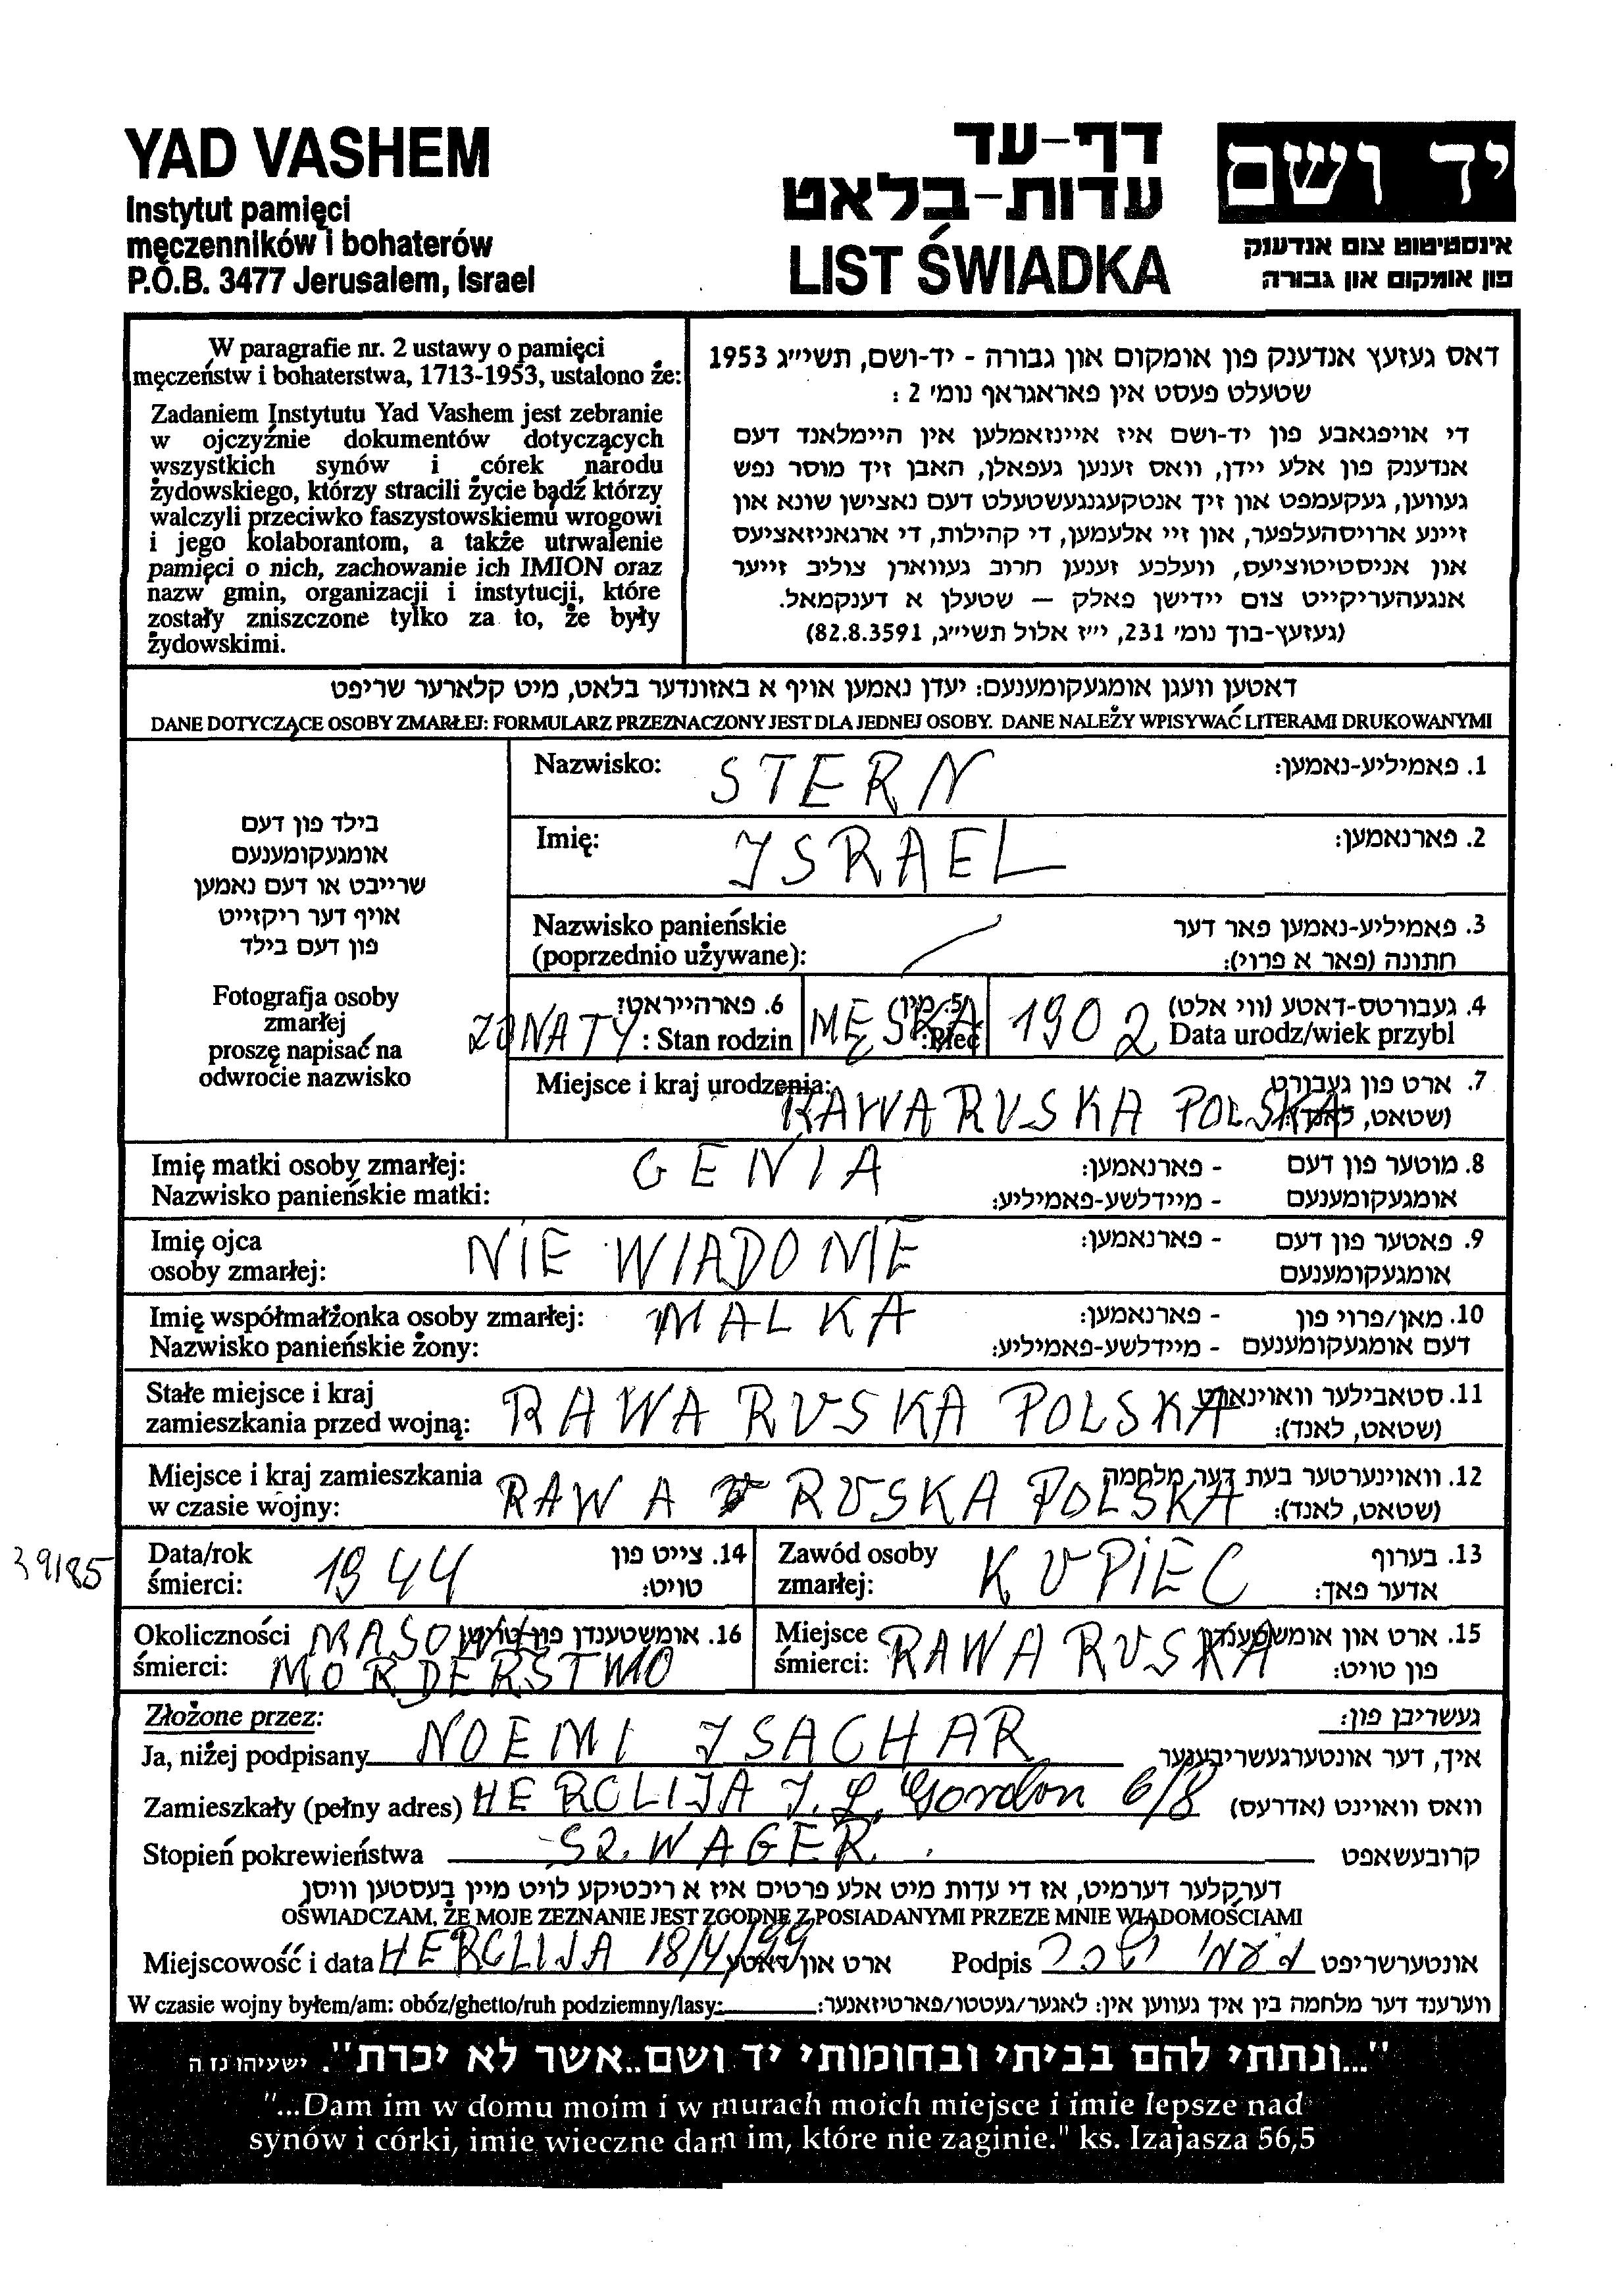 YAD VASHEM
Instytut pamięci
męczenników i bohaterów
P.O.B. 3477 Jerusalem, Israel
דף-עד
עדות-בלאט
LIST ŚWIADKA
יד ושם
אינסטיטוט צום אנדענק
פון אומקום און גבורה
W paragrafie nr. 2 ustawy o pamięci
męczeństw i bohaterstwa, 1713-1953, ustalono że:
Zadaniem Instytutu Yad Vashem jest zebranie
w ojczyźnie dokumentów dotyczących
wszystkich synów i córek narodu
żydowskiego, którzy stracili życie bądź którzy
walczyli przeciwko faszystowskiemu wrogowi
i jego kolaborantom, a także utrwalenie
pamięci o nich, zachowanie ich IMION oraz
nazw gmin, organizacji i instytucji, które
zostały zniszczone tylko za to, że były
żydowskimi.
דאס געזעץ אנדענק פון אומקום און גבורה - יד-ושם, תשי״ג 1953
שטעלט פעסט אין פאראגראף נומ׳ 2 :
די אויפגאבע פון יד-ושם איז איינזאמלען אין היימלאנד דעם
אנדענק פון אלע יידן, וואס זענען געפאלן, האבן זיך מוסר נפש
געווען, געקעמפט און זיך אנטקעגנגעשטעלט דעם נאצישן שונא און
זיינע ארויסהעלפער, און זיי אלעמען, די קהילות, די ארגאניזאציעס
און אניסטיטוציעס, וועלכע זענען חרוב געווארן צוליב זייער
אנגעהעריקייט צום יידישן פאלק – שטעלן א דענקמאל.
(געזעץ-בוך נומ׳ 231, י״ז אלול תשי״ג, 82.8.3591)
דאטען וועגן אומגעקומענעם: יעדן נאמען אויף א באזונדער בלאט, מיט קלארער שריפט
DANE DOTYCZĄCE OSOBY ZMARŁEJ: FORMULARZ PRZEZNACZONY JEST DLA JEDNEJ OSOBY. DANE NALEŻY WPISYWAĆ LITERAMI DRUKOWANYMI
בילד פון דעם
אומגעקומענעם
שרייבט או דעם נאמען
אויף דער ריקזייט
פון דעם בילד
Fotografja osoby
zmarłej
proszę napisać na
odwrocie nazwisko
Nazwisko: STERN 1. פאמיליע-נאמען:
Imię: ISRAEL 2. פארנאמען:
Nazwisko panieńskie 3. פאמיליע-נאמען פאר דער
(poprzednio używane): חתונה (פאר א פרוי):
6. פארהייראט? 5. מין 4. געבורטס-דאטע (ווי אלט)
ŻONATY : Stan rodzin MĘSKA Płeć: 1902 Data urodz/wiek przybl
Miejsce i kraj urodzenia: 7. ארט פון געבורט
RAWA RUSKA POLSKA (שטאט, לאנד):
Imię matki osoby zmarłej: GENIA - פארנאמען: 8. מוטער פון דעם
Nazwisko panieńskie matki: - מיידלשע-פאמיליע: אומגעקומענעם
Imię ojca NIE WIADOME - פארנאמען: 9. פאטער פון דעם
osoby zmarłej: אומגעקומענעם
Imię współmałżonka osoby zmarłej: MALKA - פארנאמען: 10. מאן/פרוי פון
Nazwisko panieńskie żony: - מיידלשע-פאמיליע: דעם אומגעקומענעם
Stałe miejsce i kraj 11. סטאבילער וואוינארט
zamieszkania przed wojną: RAWA RUSKA POLSKA (שטאט, לאנד):
Miejsce i kraj zamieszkania 12. וואוינערטער בעת דער מלחמה
w czasie wojny: RAWA RUSKA POLSKA (שטאט, לאנד):
39185
Data/rok 14. צייט פון
śmierci: 1944 טויט:
Zawód osoby 13. בערוף
zmarłej: KUPIEC אדער פאך:
Okoliczności MASOWE 16. אומשטענדן פון טויט:
śmierci: MORDERSTWO
Miejsce 15. ארט און אומשטענדן
śmierci: RAWA RUSKA פון טויט:
Złożone przez: געשריבן פון:
Ja, niżej podpisany NOEMI ISACHAR איך, דער אונטערגעשריבענער
Zamieszkały (pełny adres) HERCLIJA J. L. Gordon 6/8 וואס וואוינט (אדרעס)
Stopień pokrewieństwa SZWAGER קרובעשאפט
דערקלער דערמיט, אז די עדות מיט אלע פרטים איז א ריכטיקע לויט מיין בעסטען וויסן
OŚWIADCZAM, ŻE MOJE ZEZNANIE JEST ZGODNE Z POSIADANYMI PRZEZE MNIE WIADOMOŚCIAMI
Miejscowość i data HERCLIJA 18/4/99 ארט און דאטע Podpis נעמי ישכר אונטערשריפט
W czasie wojny byłem/am: obóz/ghetto/ruh podziemny/lasy: ווערענד דער מלחמה בין איך געווען אין: לאגער/געטטו/פארטיזאנער:
"...ונתתי להם בביתי ובחומותי יד ושם..אשר לא יכרת". ישעיהו נז ה
"...Dam im w domu moim i w murach moich miejsce i imie lepsze nad
synów i córki, imie wieczne dam im, które nie zaginie." ks. Izajasza 56,5